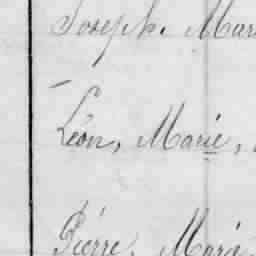 Joseph, Mar
Léon, Marie,
Pierre, Marie